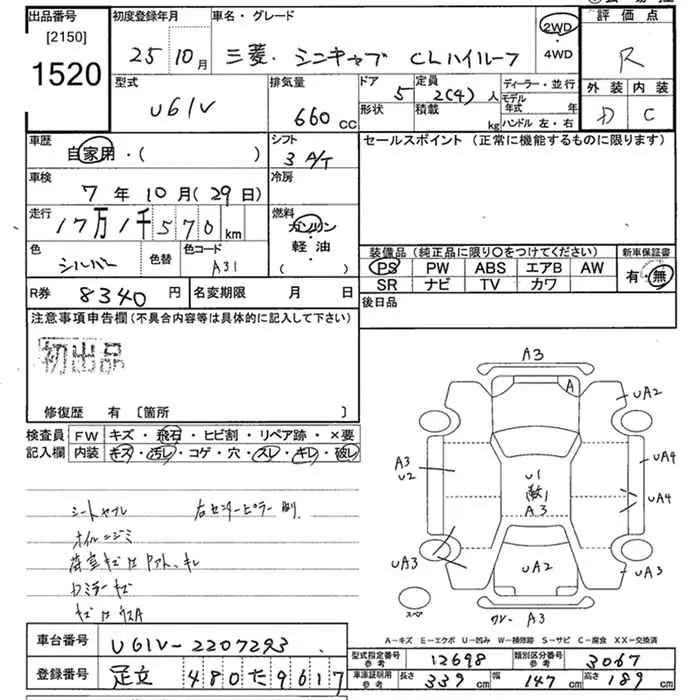 出品番号
[2150]
1520
初度登録年月
25 10月
車名・グレード
三菱. ミニキャブ CLハイルーフ
2WD
・
4WD
評価点
R
外装 内装
D C
型式
U61V
排気量
660 CC
ドア
5
形状
定員
2(4) 人
積載
kg
ディーラー・並行
モデル年式 年
ハンドル 左・右
車歴
自家用・( )
シフト
3 A/T
車検
7年10月(29日)
冷房
走行
17万1千570 km
燃料
ガソリン
・
軽油
( )
色
シルバー
色替
色コード
A31
セールスポイント (正常に機能するものに限ります)
装備品 (純正品に限り○をつけてください)
PS PW ABS エアB AW
SR ナビ TV カワ
新車保証書
有・無
R券 8340 円
名変期限 月 日
後日品
注意事項申告欄 (不具合内容等は具体的に記入して下さい)
初出品
修復歴 有 [箇所 ]
検査員記入欄
FW キズ・飛石・ヒビ割・リペア跡・×要
内装 キズ・汚レ・コゲ・穴・スレ・キレ・破レ
シートヤブレ 右センターピラー
オイルニジミ
荷室キズ
カミラーキズ
A3
A
UA2
A3
U2
UA4
UA4
U1
A3
UA3
UA2
UA3
スペア
A3
A-キズ E-エクボ U-凹み W-補修跡 S-サビ C-腐食 XX-交換済
車台番号 U61V-2207293
登録番号 足立 480 た 9617
型式指定番号 参考 12698
類別区分番号 参考 3067
車庫証明用 参考 長さ 339 cm 幅 147 cm 高さ 189 cm